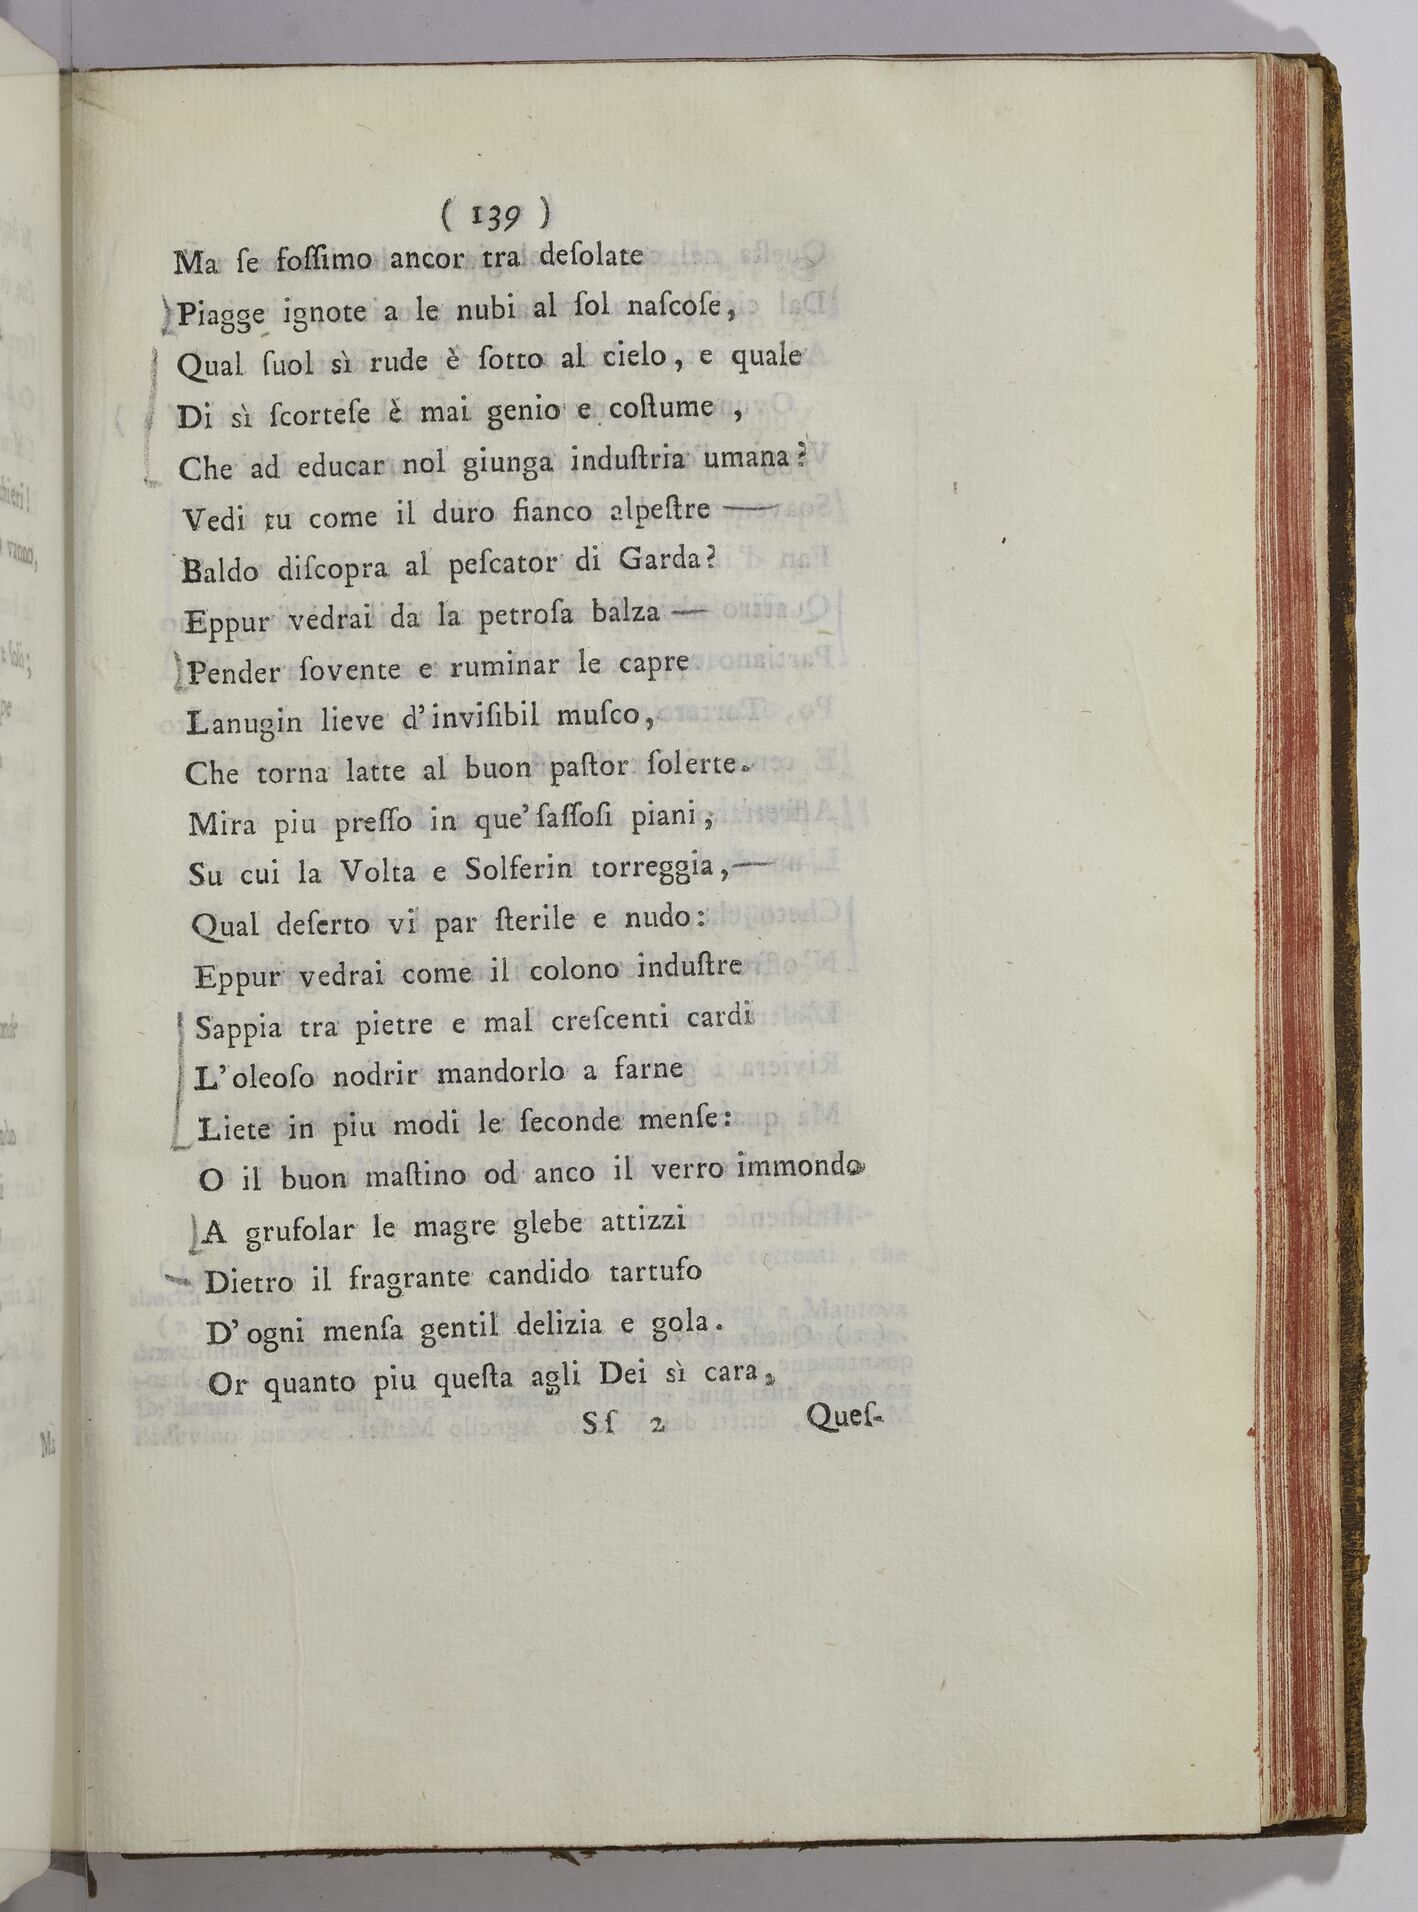 ( 139 )
Ma ſe foſſimo ancor tra deſolate
Piagge ignote a le nubi al ſol naſcoſe,
Qual ſuol sì rude è ſotto al cielo, e quale
Di sì ſcorteſe è mai genio e coſtume,
Che ad educar nol giunga induſtria umana?
Vedi tu come il duro fianco alpeſtre
Baldo diſcopra al peſcator di Garda?
Eppur vedrai da la petroſa balza
Pender ſovente e ruminar le capre
Lanugin lieve d'inviſibil muſco,
Che torna latte al buon paſtor ſolerte.
Mira piu preſſo in que' ſaſſoſi piani,
Su cui la Volta e Solferin torreggia,
Qual deſerto vi par ſterile e nudo:
Eppur vedrai come il colono induſtre
Sappia tra pietre e mal creſcenti cardi
L'oleoſo nodrir mandorlo a farne
Liete in piu modi le ſeconde menſe:
O il buon maſtino od anco il verro immondo
A grufolar le magre glebe attizzi
Dietro il fragrante candido tartufo
D'ogni menſa gentil delizia e gola.
Or quanto piu queſta agli Dei sì cara,
Sſ 2 Queſ-